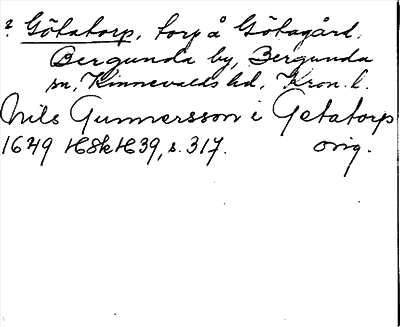 ? Götatorp, torp å Götagård,
Bergunda by, Bergunda
sn, Kinnevalds hd, Kron. l.
Nils Gunnersson i Getatorp
1649 HSkH39, s. 317. orig.